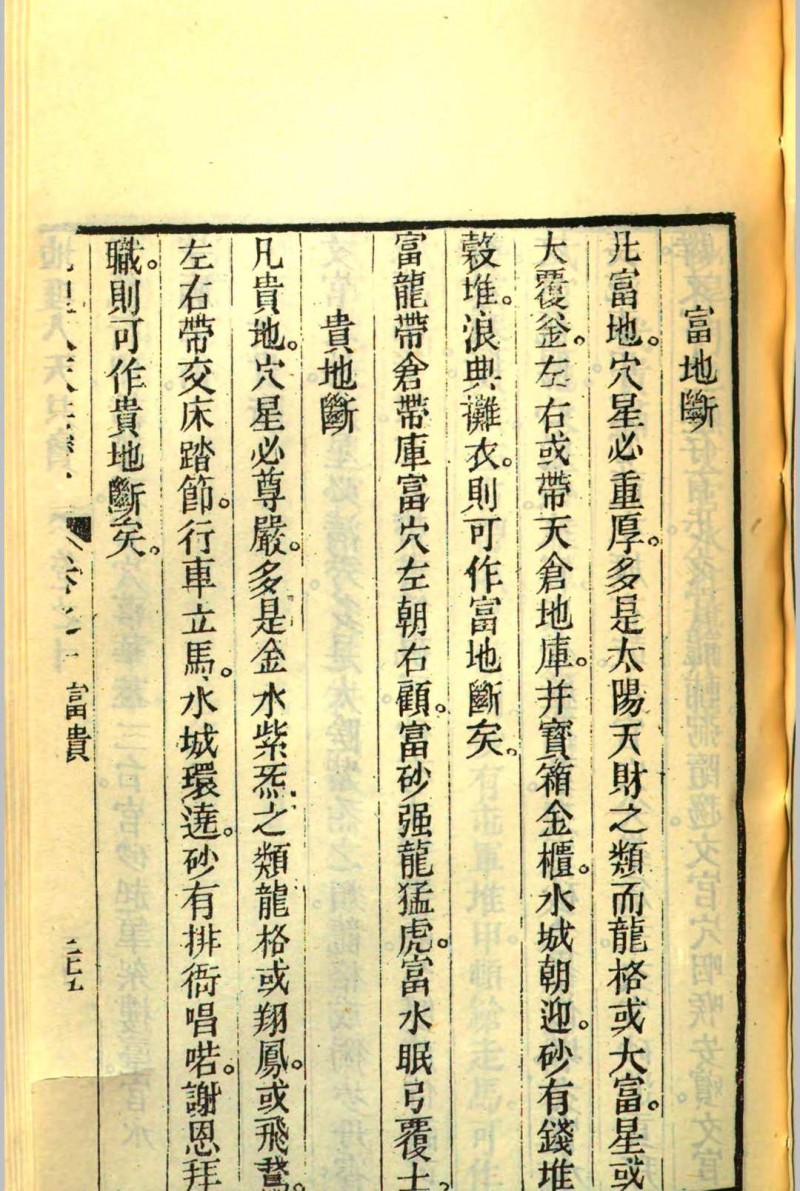 富地斷
凡富地。穴星必重厚。多是太陽天財之類而龍格或大富。星或
大覆釜。左右或帶天倉地庫。并寶箱金櫃。水城朝迎。砂有錢堆
穀堆。浪典攤衣。則可作富地斷矣。
富龍帶倉帶庫富穴左朝右顧。富砂强龍猛虎。富水眠弓覆
貴地斷
凡貴地。穴星必尊嚴。多是金水紫炁之類龍格或翔鳳。或飛鵞。
左右帶交床踏節。行車立馬。水城環遶。砂有排衙唱喏。謝恩拜
職。則可作貴地斷矣。
富貴